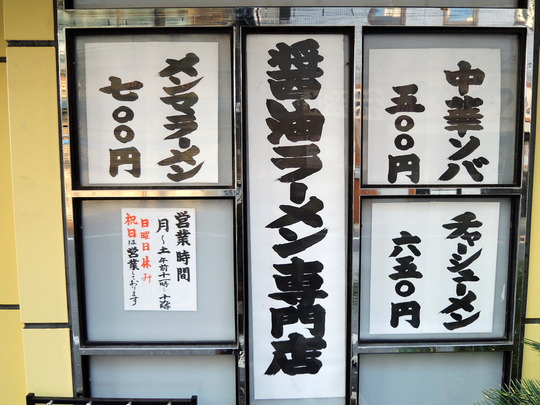 中華ソバ
五〇〇円
チャーシューメン
六五〇円
醤油ラーメン専門店
メンマラーメン
七〇〇円
営業時間
月〜土 午前十一時〜十時
日曜日休み
祝日は営業しております